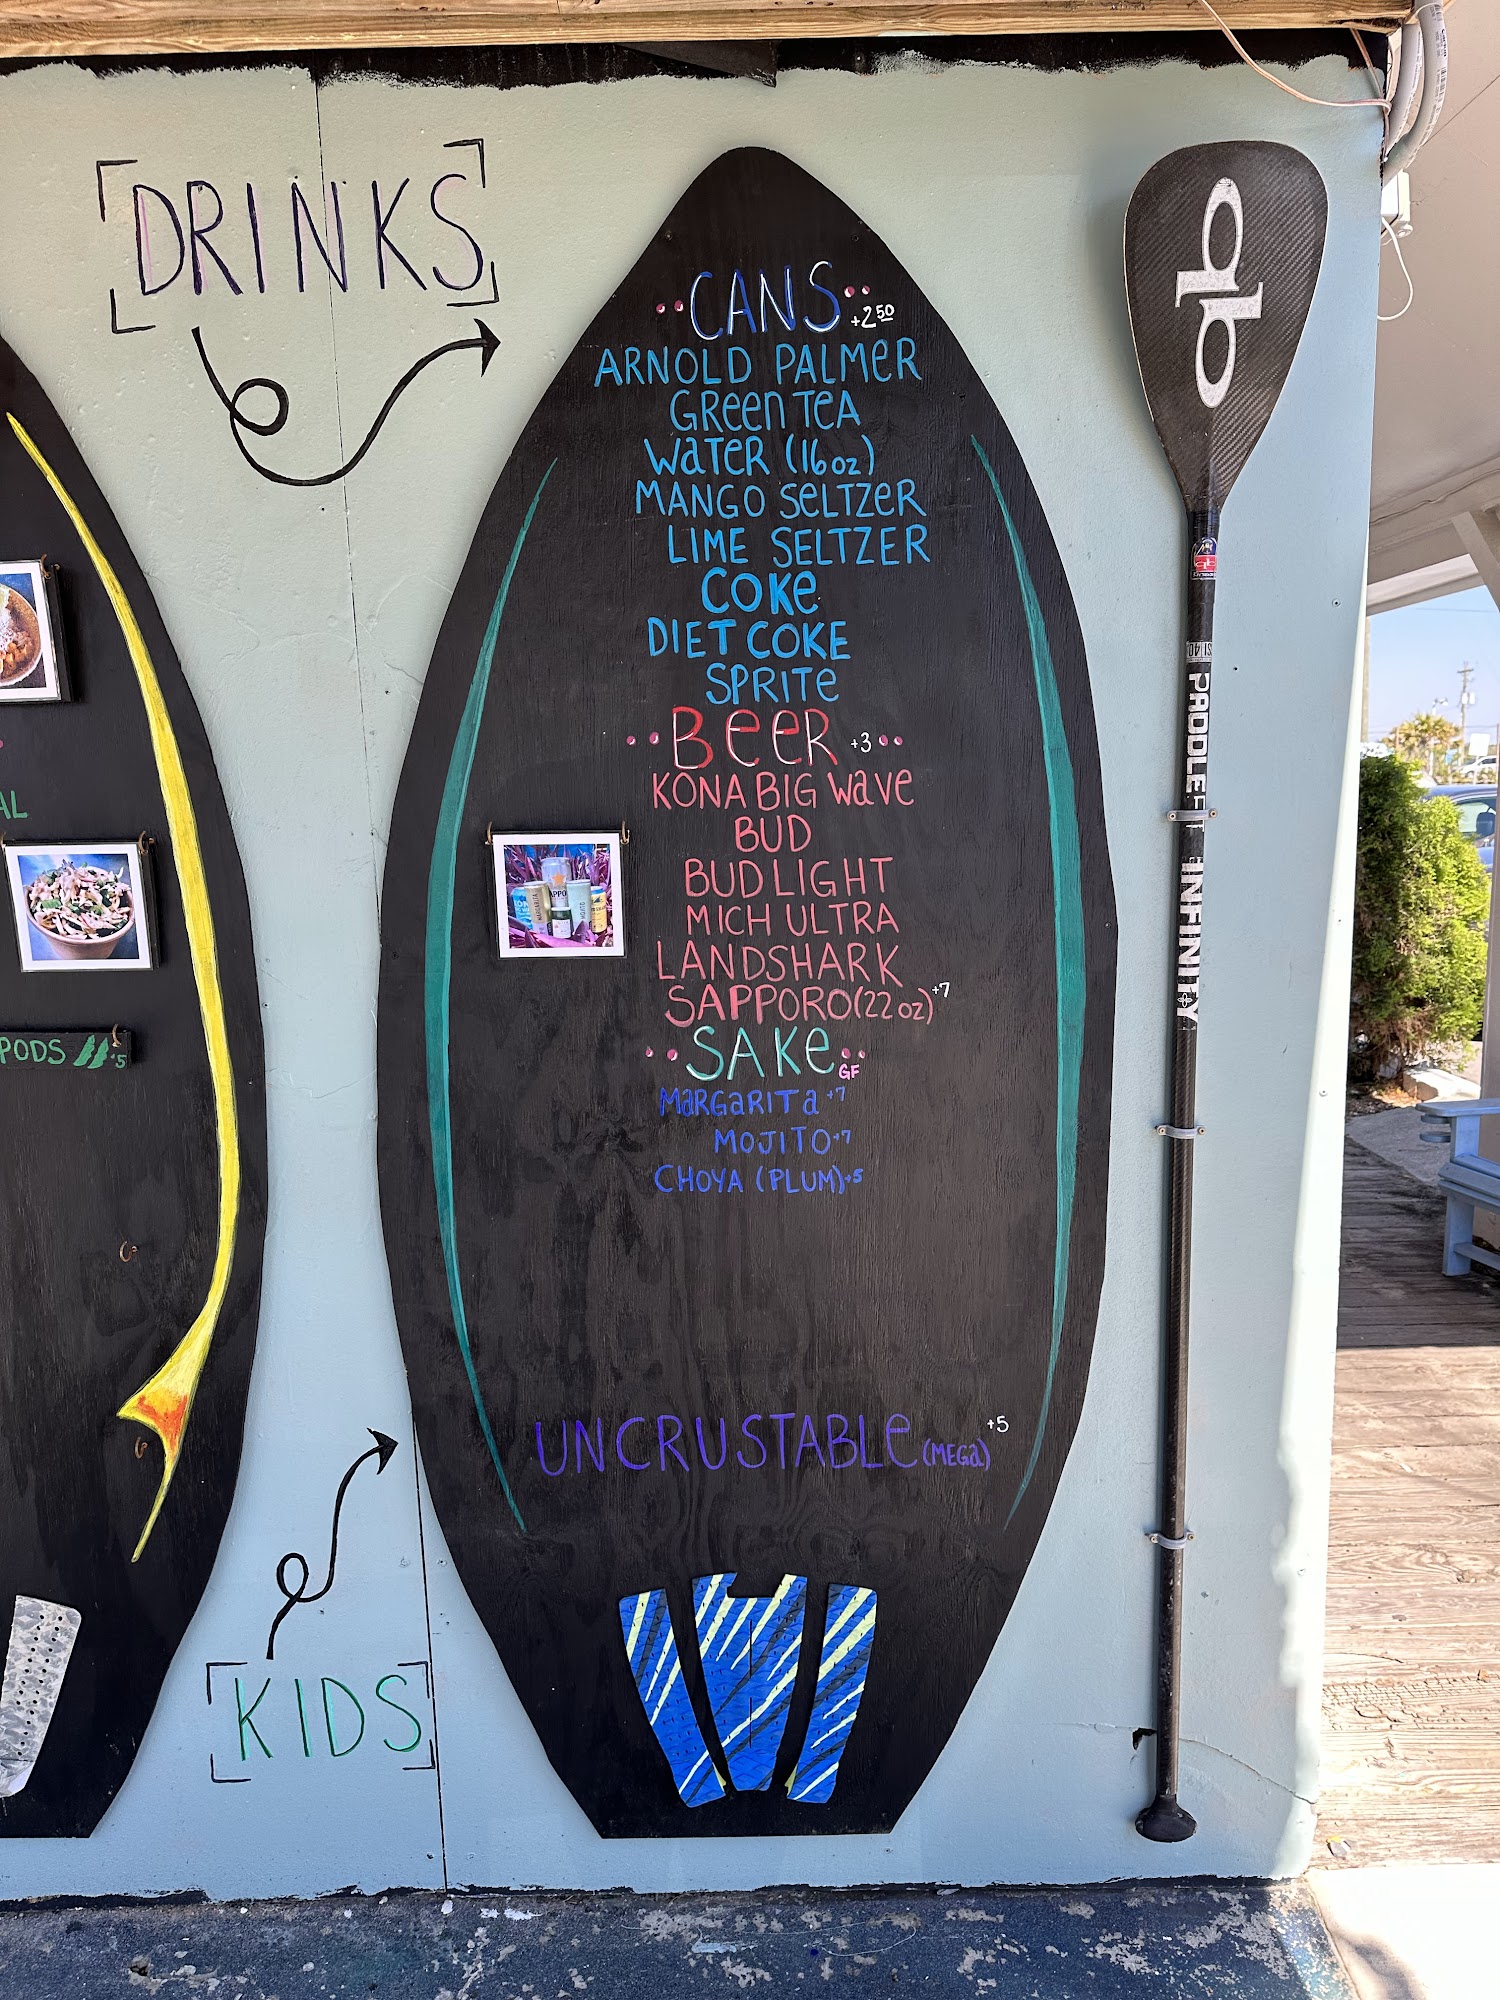 DRINKS
CANS +2.50
ARNOLD PALMeR
GReen TeA
WaTeR (16oz)
MANGO SeLTZeR
LIME SELTZER
COKe
DIET COKE
SPRITe
BeeR +3
KONA BIG WaVe
BUD
BUD LIGHT
MICH ULTRA
LANDSHARK
SAPPORO (22oz) +7
SAKe GF
MaRGaRITa +7
MOJITO +7
CHOYA (PLUM) +5
UNCRUSTABLe (MEGa) +5
KIDS
AL
PODS +5
MARGARITA
MOJITO
PADDLE
INFINITY